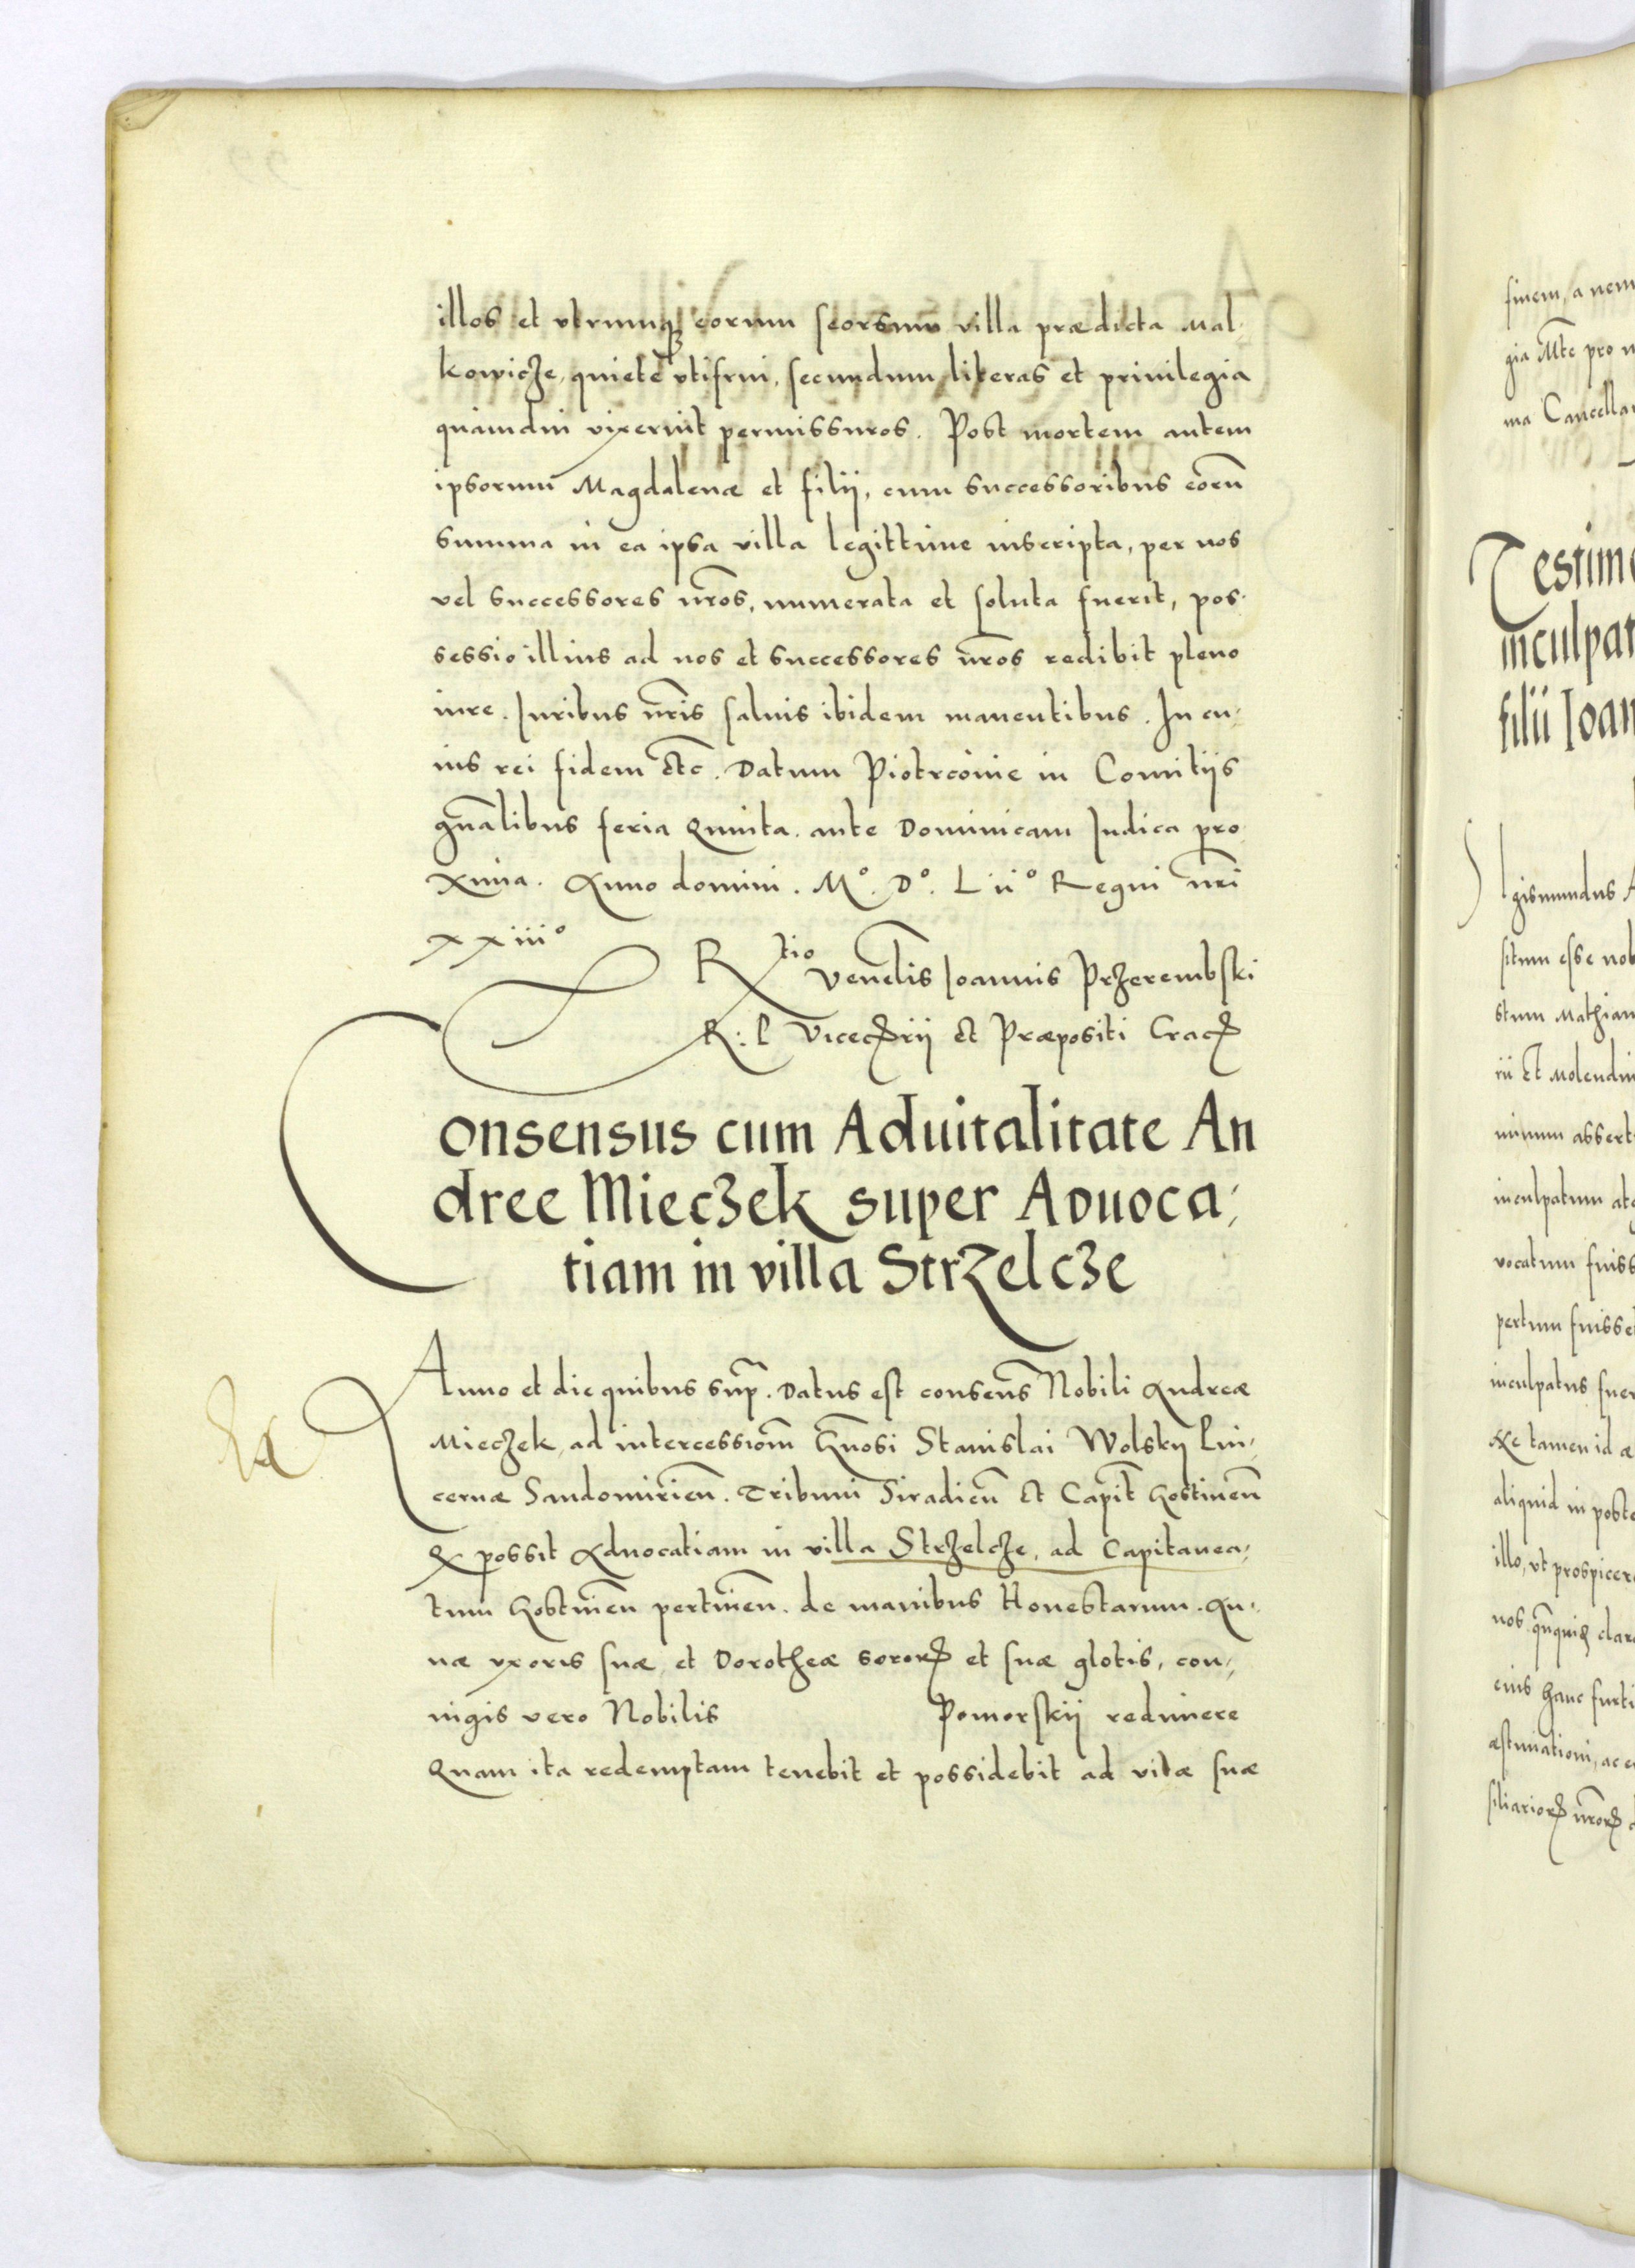 illos et vtrumq3 eorum seorsum villa prædicta Mal-
kowicze, quiete vtifrui, secundum literas et priuilegia
quamdiu vixerint permissuros. Post mortem autem
ipsorum Magdalenæ et filij, cum successoribus eorū
summa in ea ipsa villa legittime inscripta, per nos
vel successores nr̄os, numerata et soluta fuerit, pos-
sessio illius ad nos et successores nr̄os redibit pleno
iure. Iuribus nr̄is saluis ibidem manentibus. In cu-
ius rei fidem etc̄. Datum Piotrcouie in Comitijs
gn̄alibus feria Quinta. ante Dominicam Iudica pro
xima. Anno domini. Mº. Dº. Liiº Regni nr̄i
xxiiiº
Rtio Venēlis Ioannis Przerembski
R: P Vicecꝝrij et Præpositi Cracꝝ
Consensus cum Aduitalitate An
dree Mieczek super Aduoca-
tiam in villa Strzelcze
Anno et die quibus supͬ. Datus est consens̄ Nobili Andreæ
Mieczek, ad intercessionm̄ Gn̄osi Stanislai Wolsky Pin-
cernæ Sandomirien̄. Tribuni Siradien̄ et Capit̄ Gostinen̄
Qꝫ possit Aduocatiam in villa Strzelcze, ad Capitanea-
tum Gostinen̄ pertinen̄. de manibus Honestarum. An-
næ vxoris suæ, et Dorotheæ sororꝝ et suæ glotis, con-
iugis vero Nobilis Pomorskij redimere
Quam ita redemptam tenebit et possidebit ad vitæ suæ
finem, a nem
gia Mt̄e pro n
ma Cancella
Testimo
inculpat
filii Ioan
Sigismundus A
situm esse nob
stum Mathiam
rii Et Molendin
nimum assert
inculpatum at
vocatum fuiss
pertum fuisse
inculpatus fuer
Ne tamen id æ
aliquid in poste
illo, vt prospicer
nos
eius hanc furti
æstimationi, ac e
siliariorꝝ nr̄orꝝ